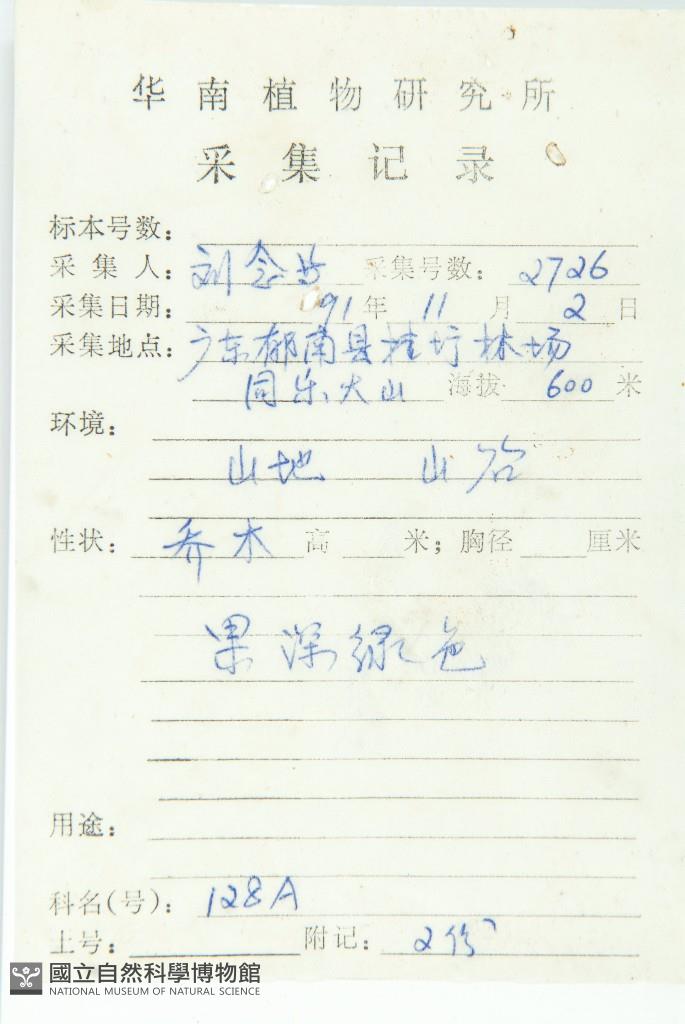 华南植物研究所
采集记录
标本号数：
采集人：刘念 采集号数：2726
采集日期：91年11月2日
采集地点：广东郁南县桂圩林场
同乐大山 海拔 600 米
环境：
山地 山谷
性状：乔木 高 米；胸径 厘米
果深绿色
用途：
科名(号)：128A
土号： 附记：2份
國立自然科學博物館
NATIONAL MUSEUM OF NATURAL SCIENCE